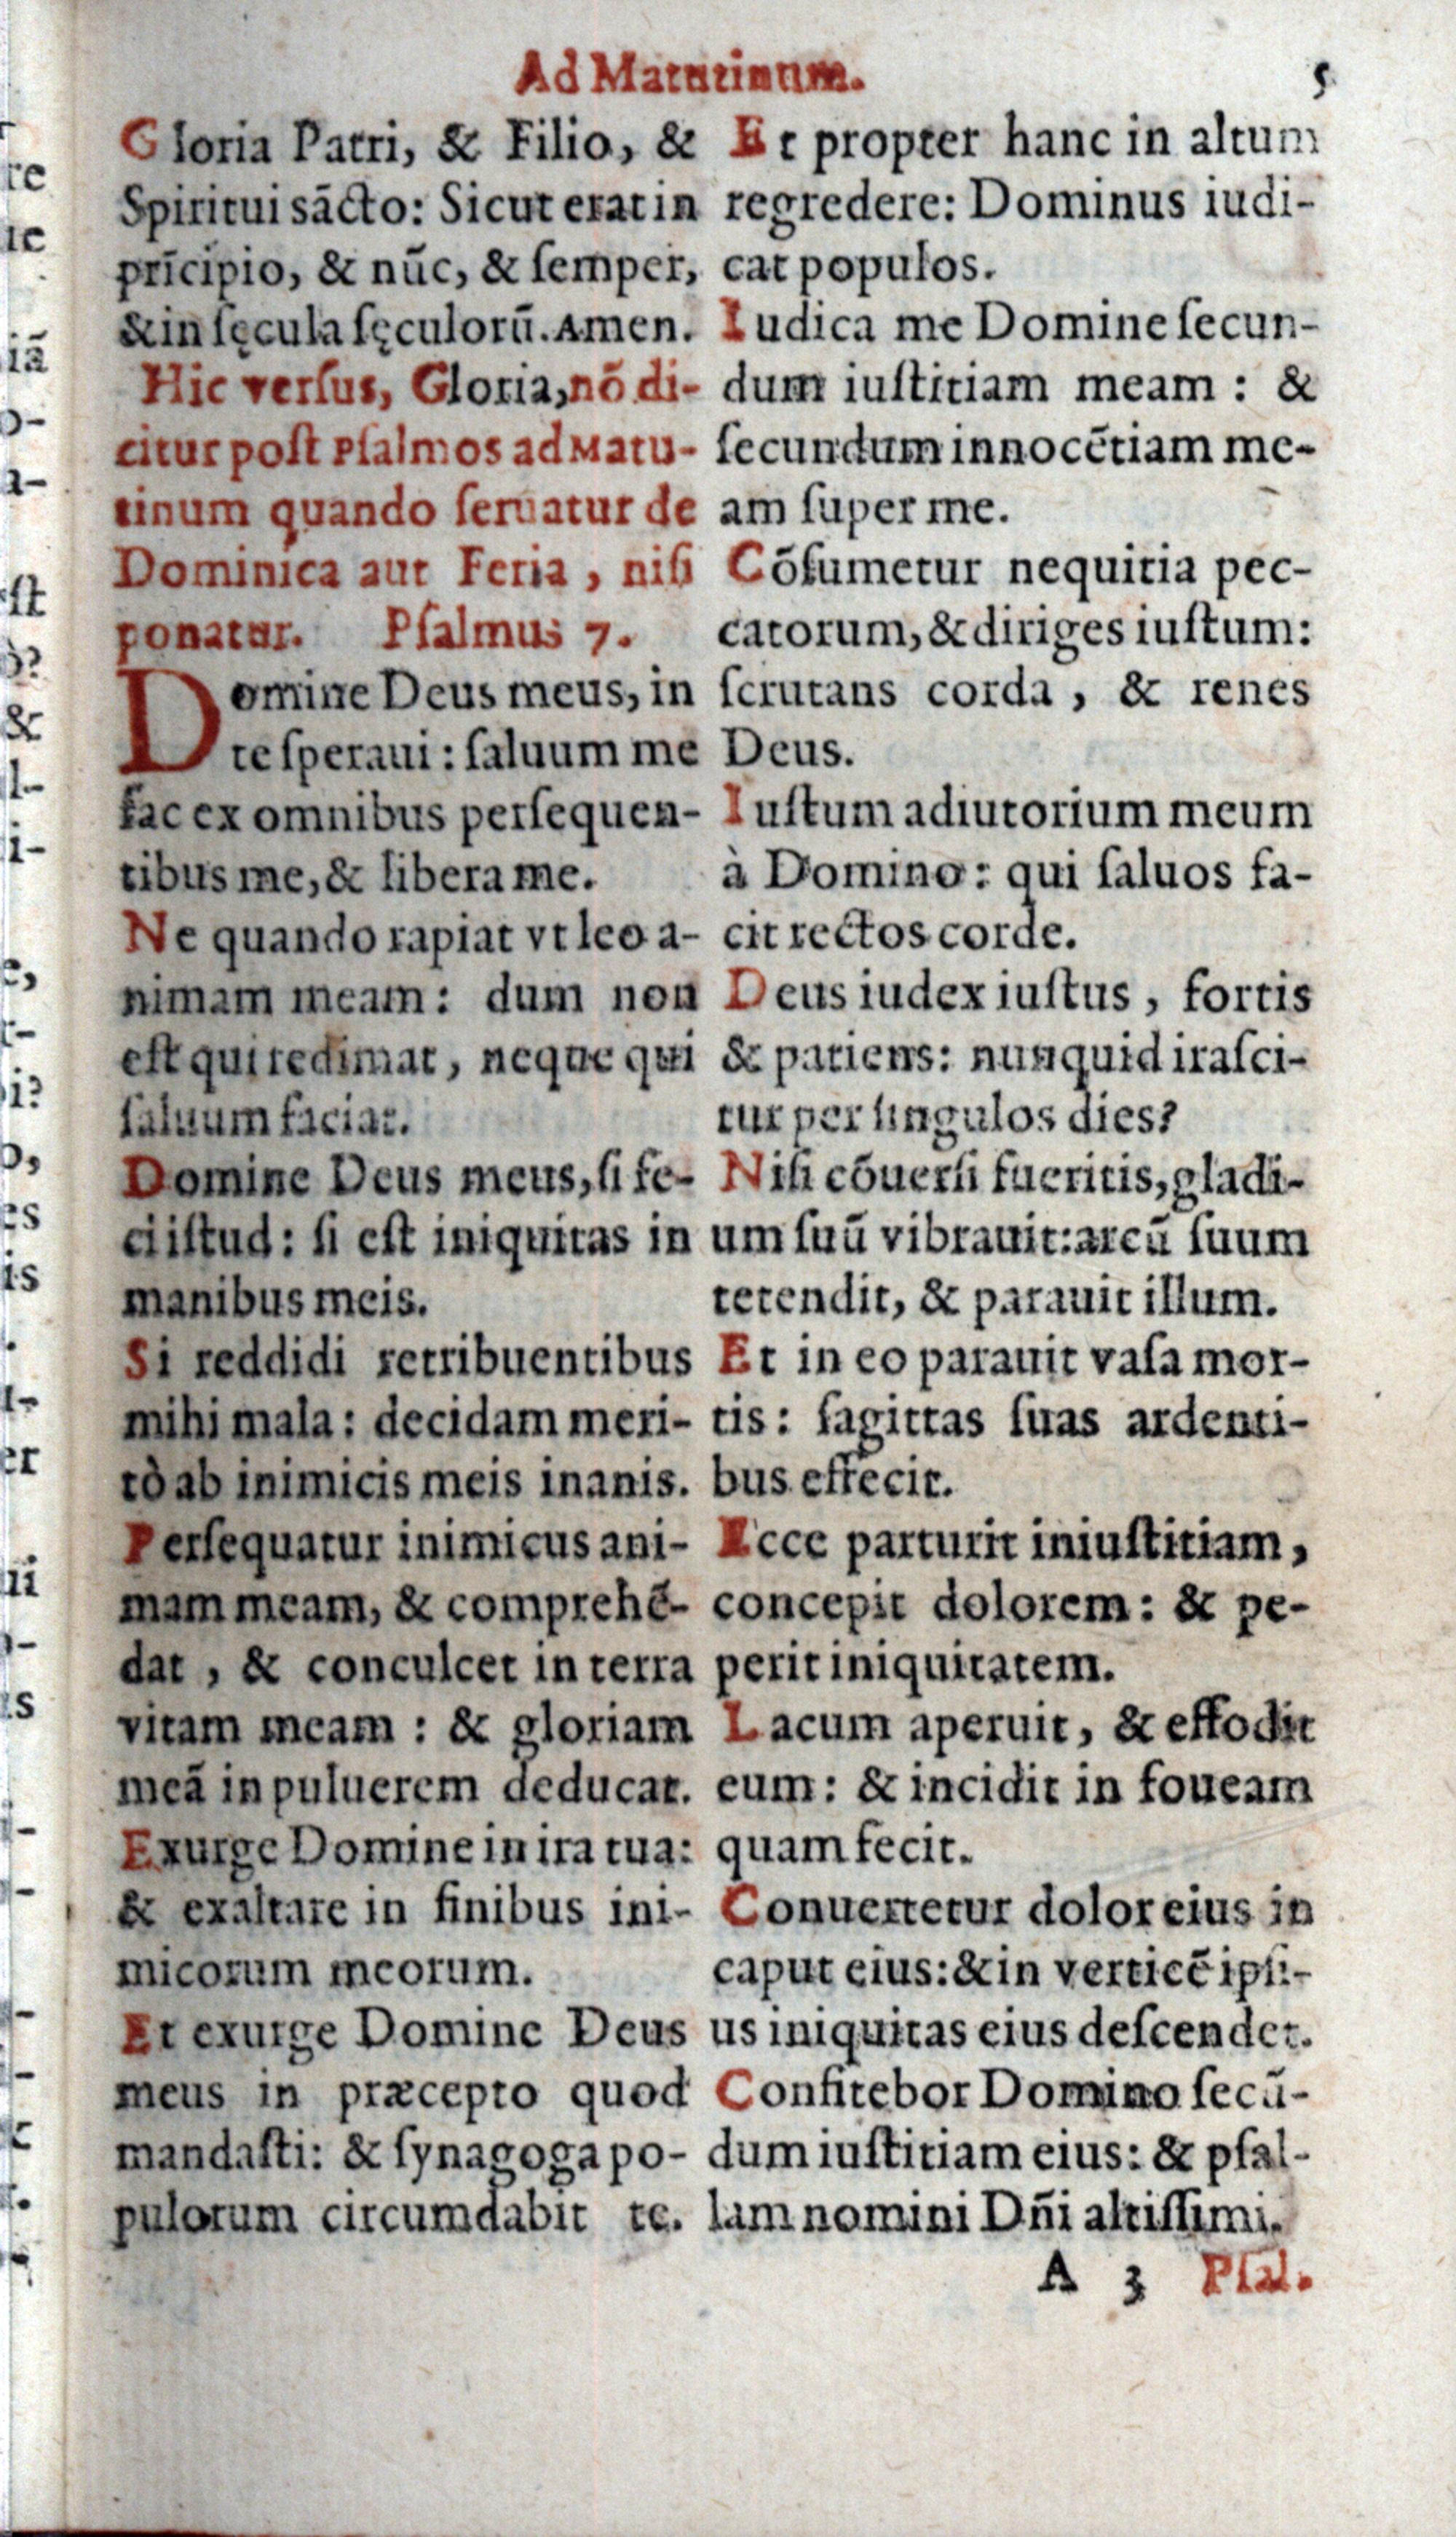 Ad Matutinum. 5
Gloria Patri, & Filio, &
Spiritui sācto: Sicut erat in
prīcipio, & nūc, & ſemper,
& in ſęcula ſęculorū. Amen.
Hic verſus, Gloria, nō di-
citur poſt Pſalmos ad Matu-
tinum quando ſeruatur de
Dominica aut Feria, niſi
ponatur. Pſalmus 7.
Domine Deus meus, in
te ſperaui: ſaluum me
fac ex omnibus perſequen-
tibus me, & libera me.
Ne quando rapiat vt leo a-
nimam meam: dum non
eſt qui redimat, neque qui
ſaluum faciat.
Domine Deus meus, ſi fe-
ci iſtud: ſi eſt iniquitas in
manibus meis.
Si reddidi retribuentibus
mihi mala: decidam meri-
tò ab inimicis meis inanis.
Perſequatur inimicus ani-
mam meam, & comprehē-
dat, & conculcet in terra
vitam meam: & gloriam
meā in puluerem deducat.
Exurge Domine in ira tua:
& exaltare in finibus ini-
micorum meorum.
Et exurge Domine Deus
meus in præcepto quod
mandaſti: & ſynagoga po-
pulorum circumdabit te.
Et propter hanc in altum
regredere: Dominus iudi-
cat populos.
Iudica me Domine ſecun-
dum iuſtitiam meam: &
ſecundum innocētiam me-
am ſuper me.
Cōſumetur nequitia pec-
catorum, & diriges iuſtum:
ſcrutans corda, & renes
Deus.
Iuſtum adiutorium meum
à Domino: qui ſaluos fa-
cit rectos corde.
Deus iudex iuſtus, fortis
& patiens: nunquid iraſci-
tur per ſingulos dies?
Niſi cōuerſi fueritis, gladi-
um ſuū vibrauit: arcū ſuum
tetendit, & parauit illum.
Et in eo parauit vaſa mor-
tis: ſagittas ſuas ardenti-
bus effecit.
Ecce parturit iniuſtitiam,
concepit dolorem: & pe-
perit iniquitatem.
Lacum aperuit, & effodit
eum: & incidit in foueam
quam fecit.
Conuertetur dolor eius in
caput eius: & in verticē ipſi-
us iniquitas eius deſcendet.
Confitebor Domino ſecū-
dum iuſtitiam eius: & pſal-
lam nomini Dñi altiſſimi.
A 3 Pſal.